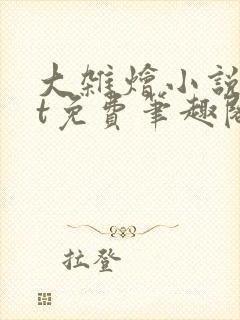 大雜燴小說
t免費筆趣閣
拉登